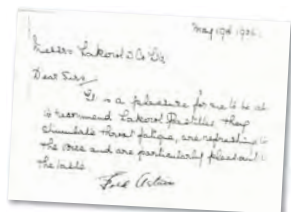 May 19th 1936.
Messrs Läkerol & Co Ltd
Dear Sirs
It is a pleasure for me to be
to recommend Läkerol Pastilles they
throat fatigue, are refreshing to
the voice and are particularly pleasant to
the taste.
Fred Astaire